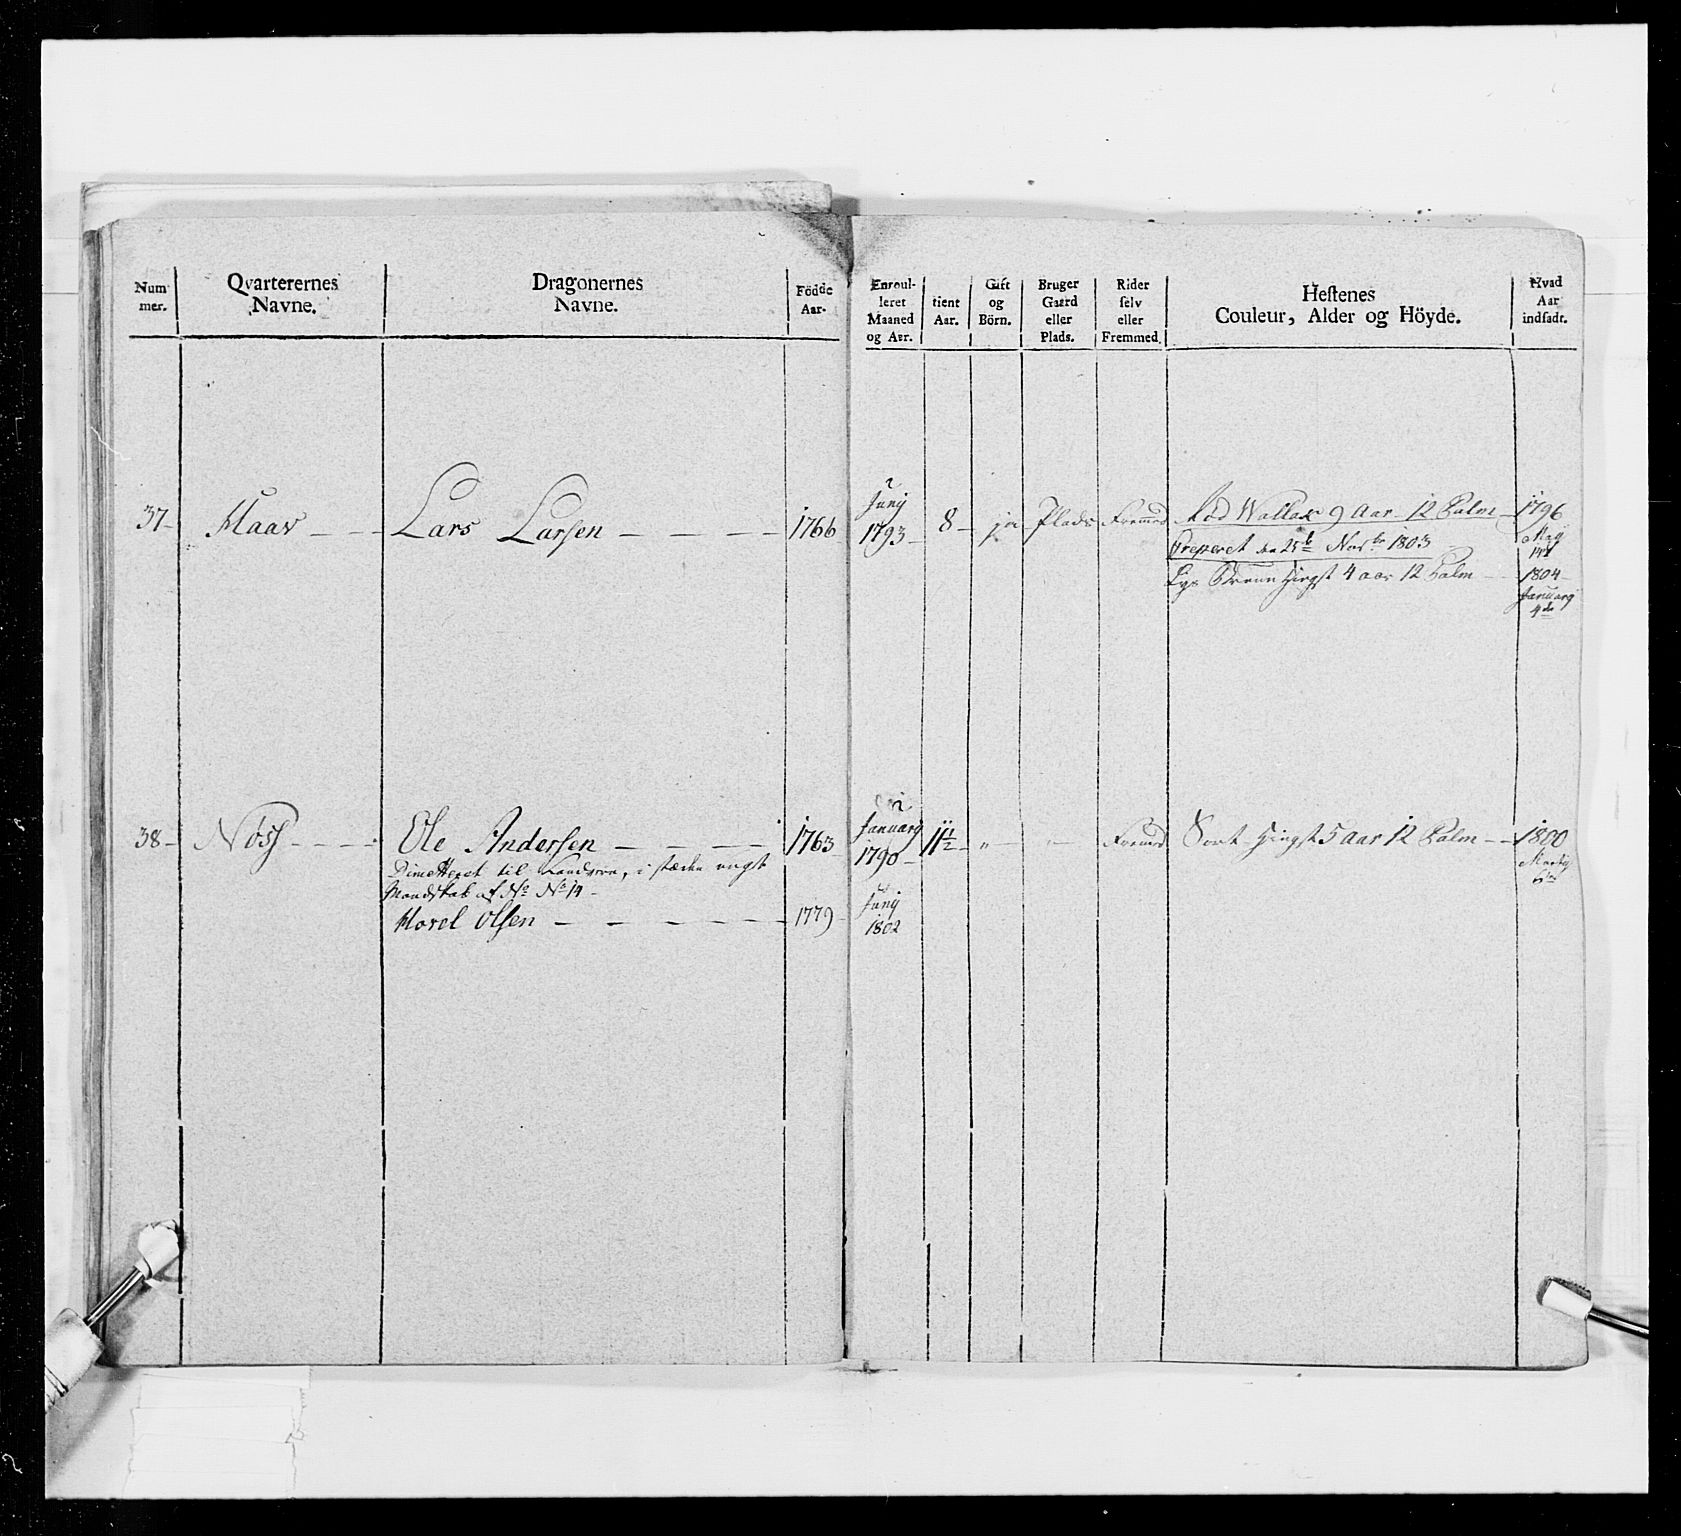 Num
mer.
Qvarterernes
Navne.
Dragonernes
Navne.
Födde
Aar.
Enroul-
leret
Maaned
og Aar.
tient
Aar.
Gift
og
Börn.
Bruger
Gaard
eller
Plads.
Rider
selv
eller
Fremmed.
Hestenes
Couleur, Alder og Höyde.
Hvad
Aar
indsadt.
37
Maav
Lars Larsen
1766
Junij
1793
8
ja
Plads
Fremed
Rød Wallak 9 Aar 12 Palm
Creperet den 25de Novbr 1803
Lys Bruun Hingst 4 aar 12 Palm
1796
Maij
1804
Januarij
4de
38
Nöss
Ole Andersen
Dimitteret til Landvern, i stæden ungt
Mandskab af No No 14
Morel Olsen
1763
1779
Januarij
1790
Junij
1802
11½
"
Fremed
Sort Hingst 5 Aar 12 Palm
1800
Martij
6te